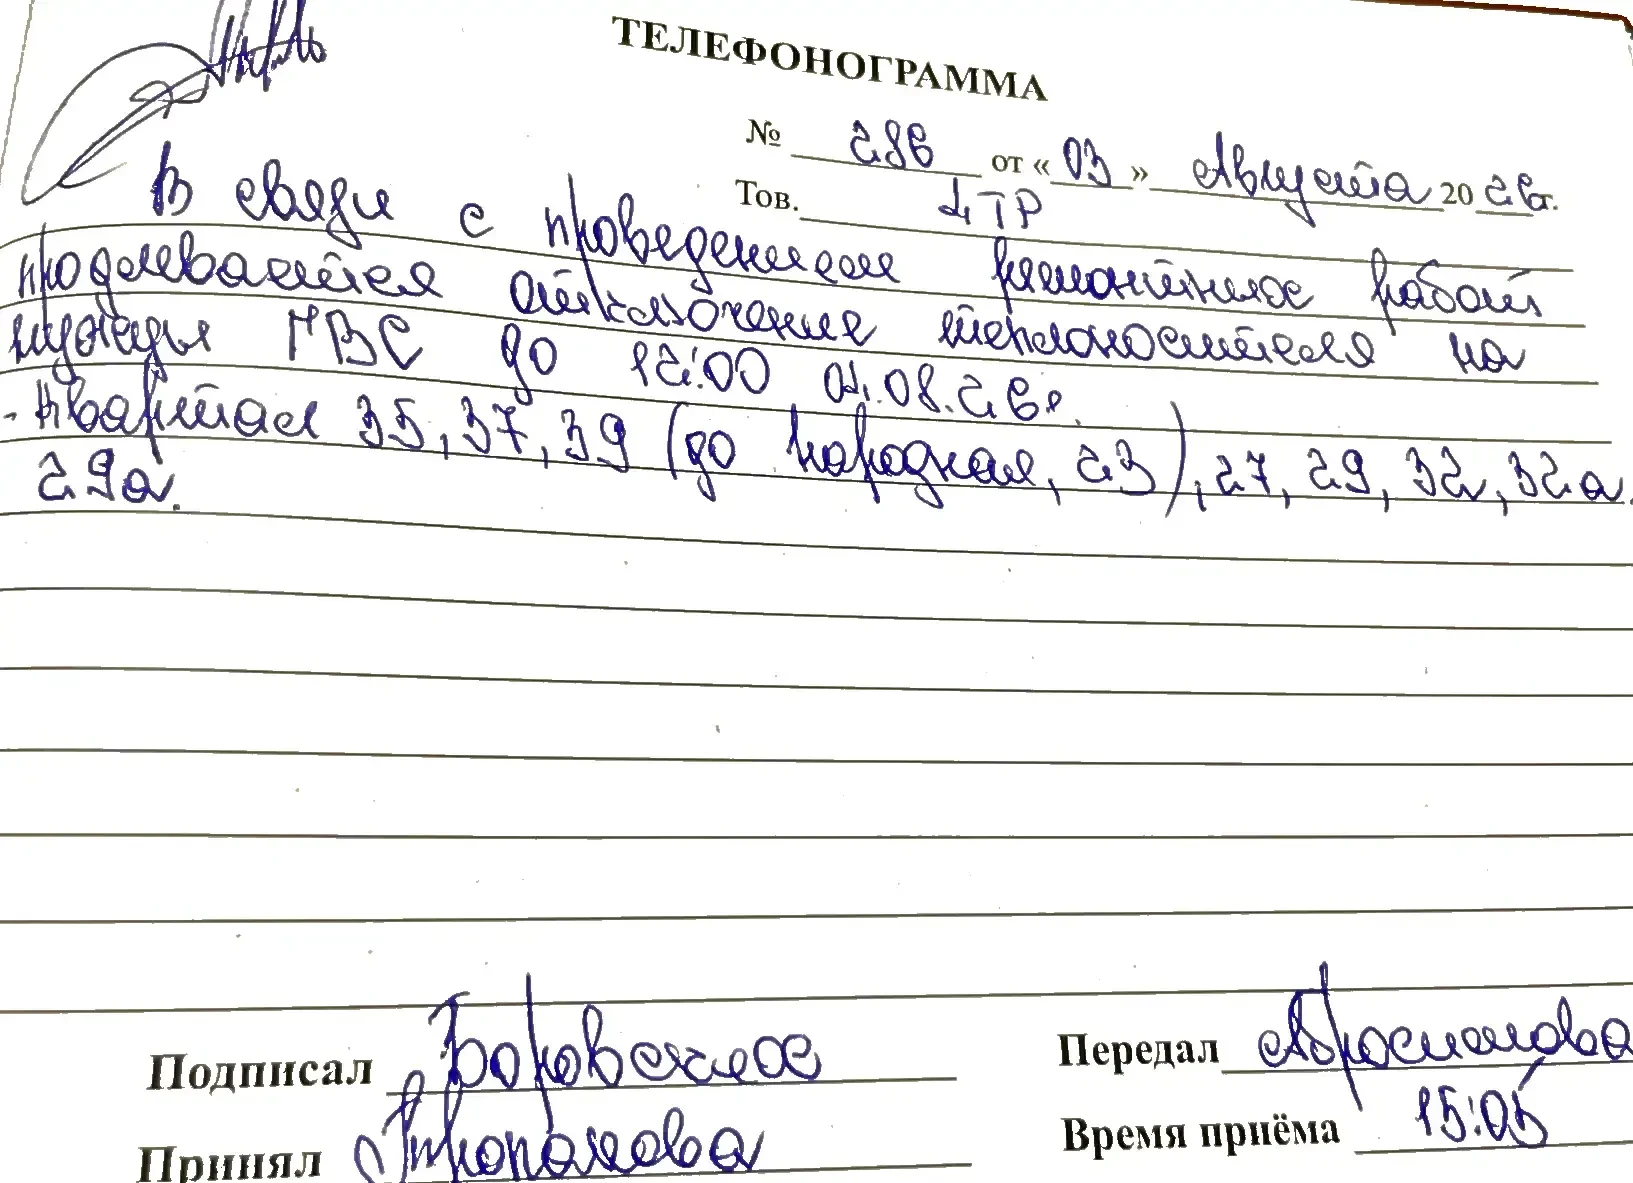 ТЕЛЕФОНОГРАММА
№ 286 от «03» Августа 2026г.
Тов. ДТР
В связи с проведением ремонтных работ
продлевается отключение теплоносителя на
нужды ГВС до 12:00 04.08.26г.
- Квартал 35, 37, 39 (до Народная, 23), 27, 29, 32, 32а.
29а.
Подписал Боровских Передал Абросимова
Принял Время приёма 15:05